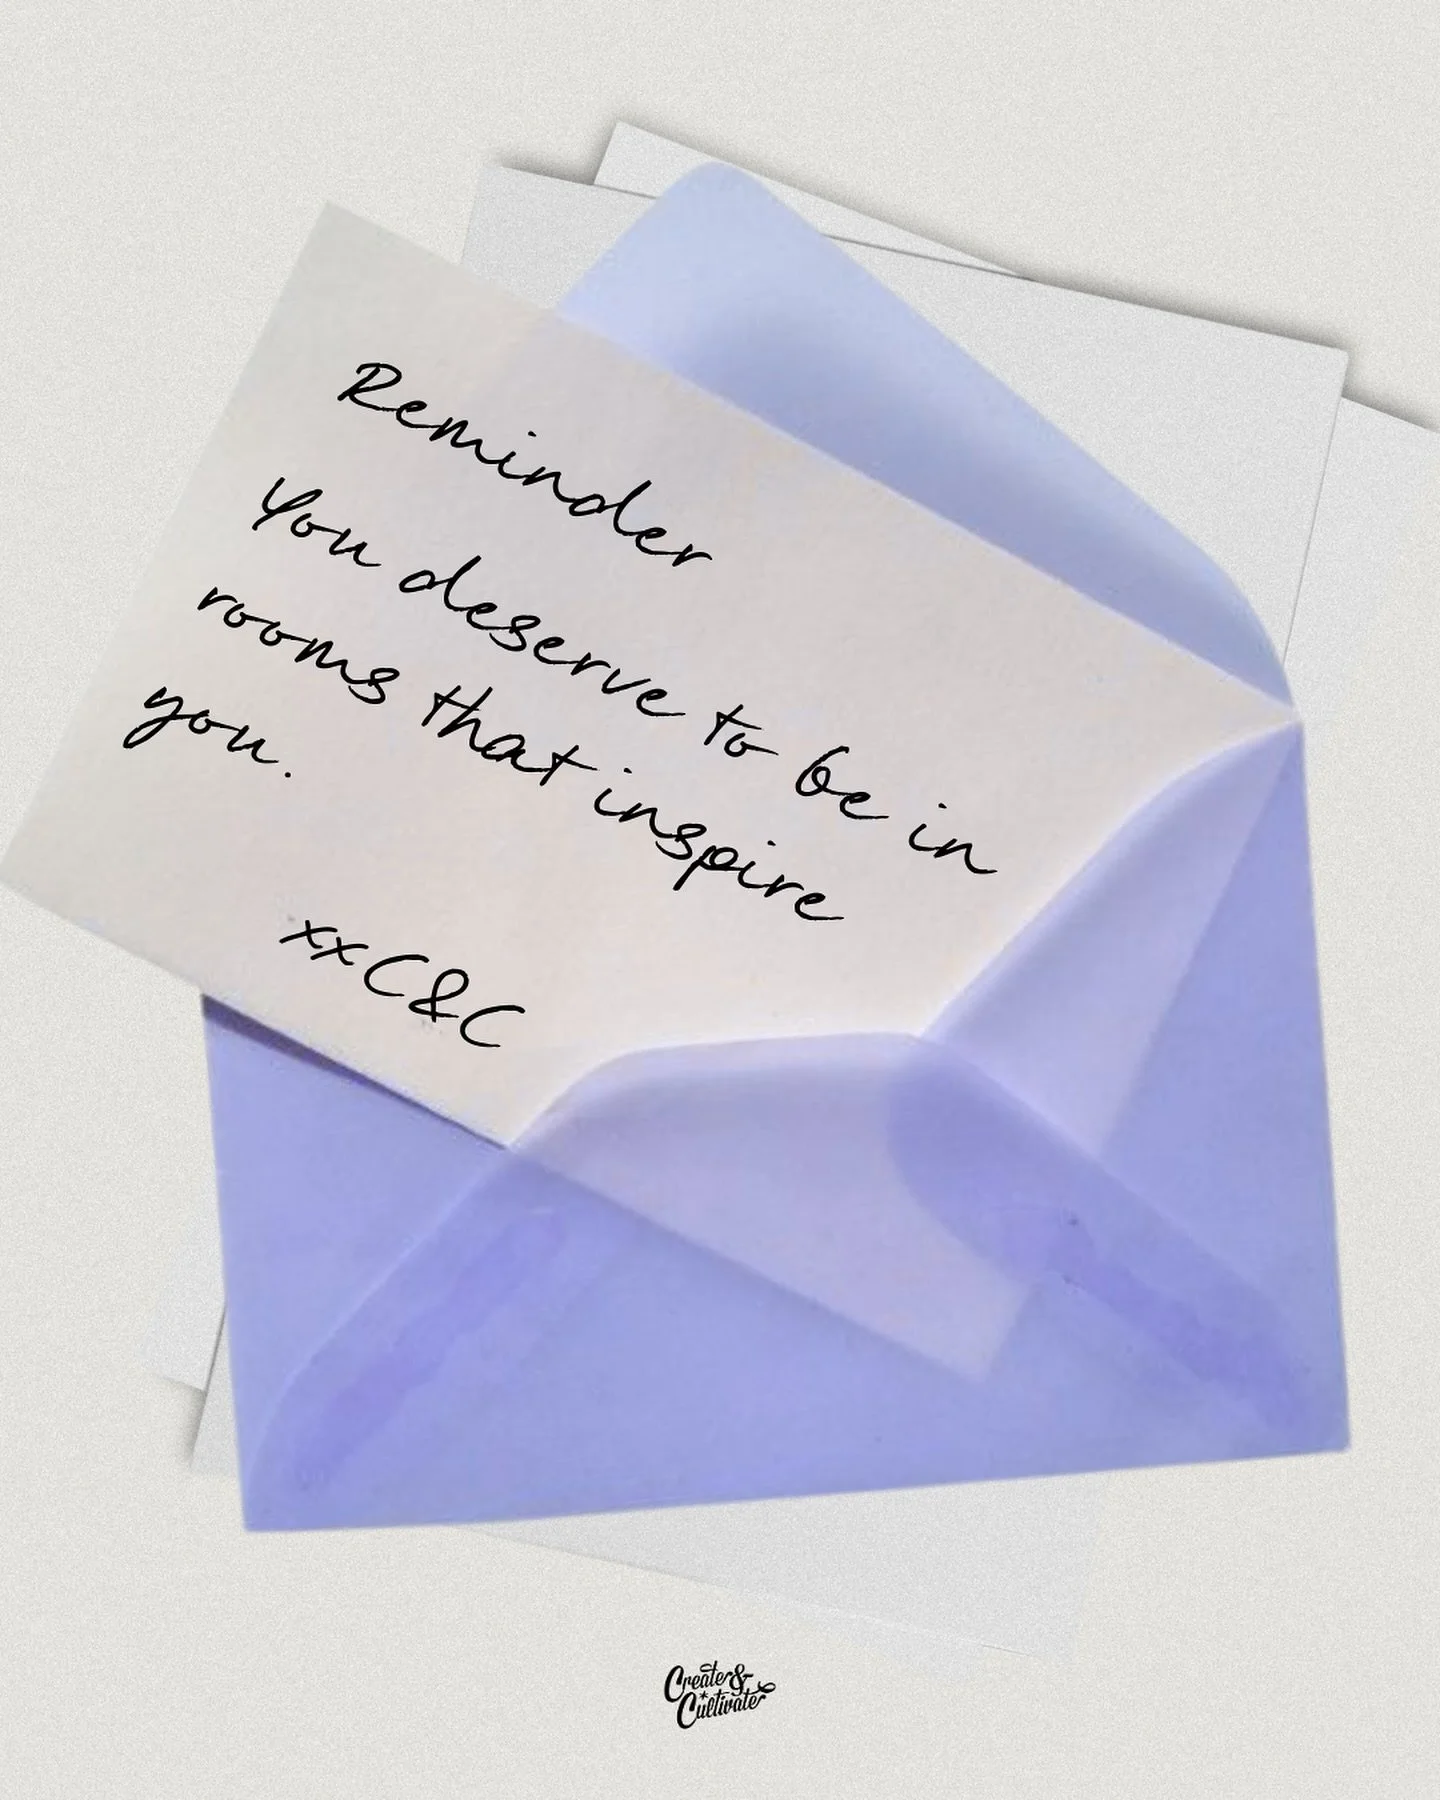 Reminder
You deserve to be in
rooms that inspire
you.
xxC&C
Create &
Cultivate